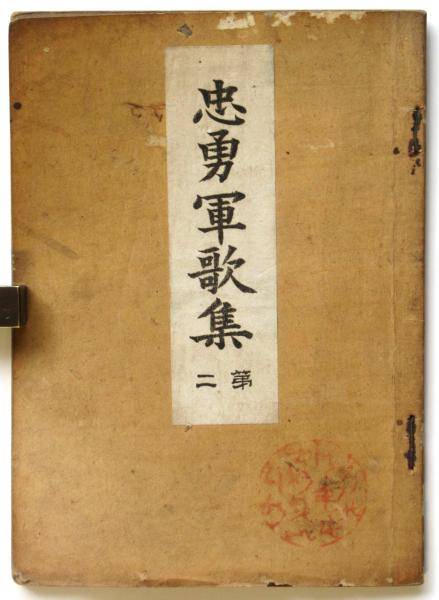 忠勇軍歌集
第二